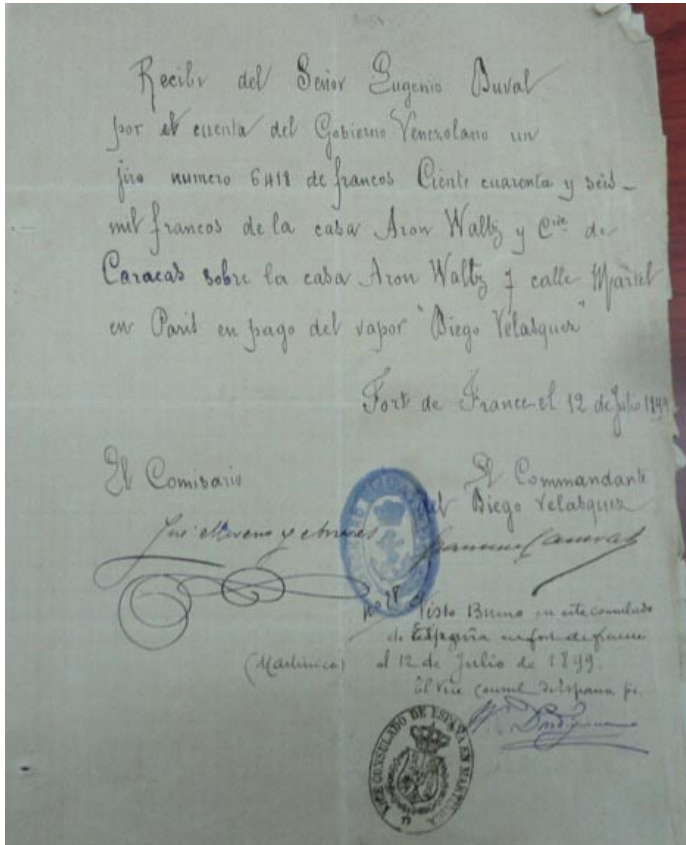 Recibi del Señor Eugenio Duval
por el cuenta del Gobierno Venezolano un
jiro numero 6418 de francos Ciento cuarenta y seis-
mil francos de la casa Aron Waltz y Cie de
Caracas sobre la casa Aron Waltz 7 calle Martel
en Paris en pago del vapor "Diego Velasquez"
Fort de France el 12 de Julio 1899
El Comisario
El Commandante
del Diego Velasquez
José Moreno y
No 28 Visto Bueno en este consulado
de España en fort de france
(Martinica) el 12 de Julio de 1899.
El Vice Consul de España
VICE CONSULADO DE ESPAÑA EN MARTINICA